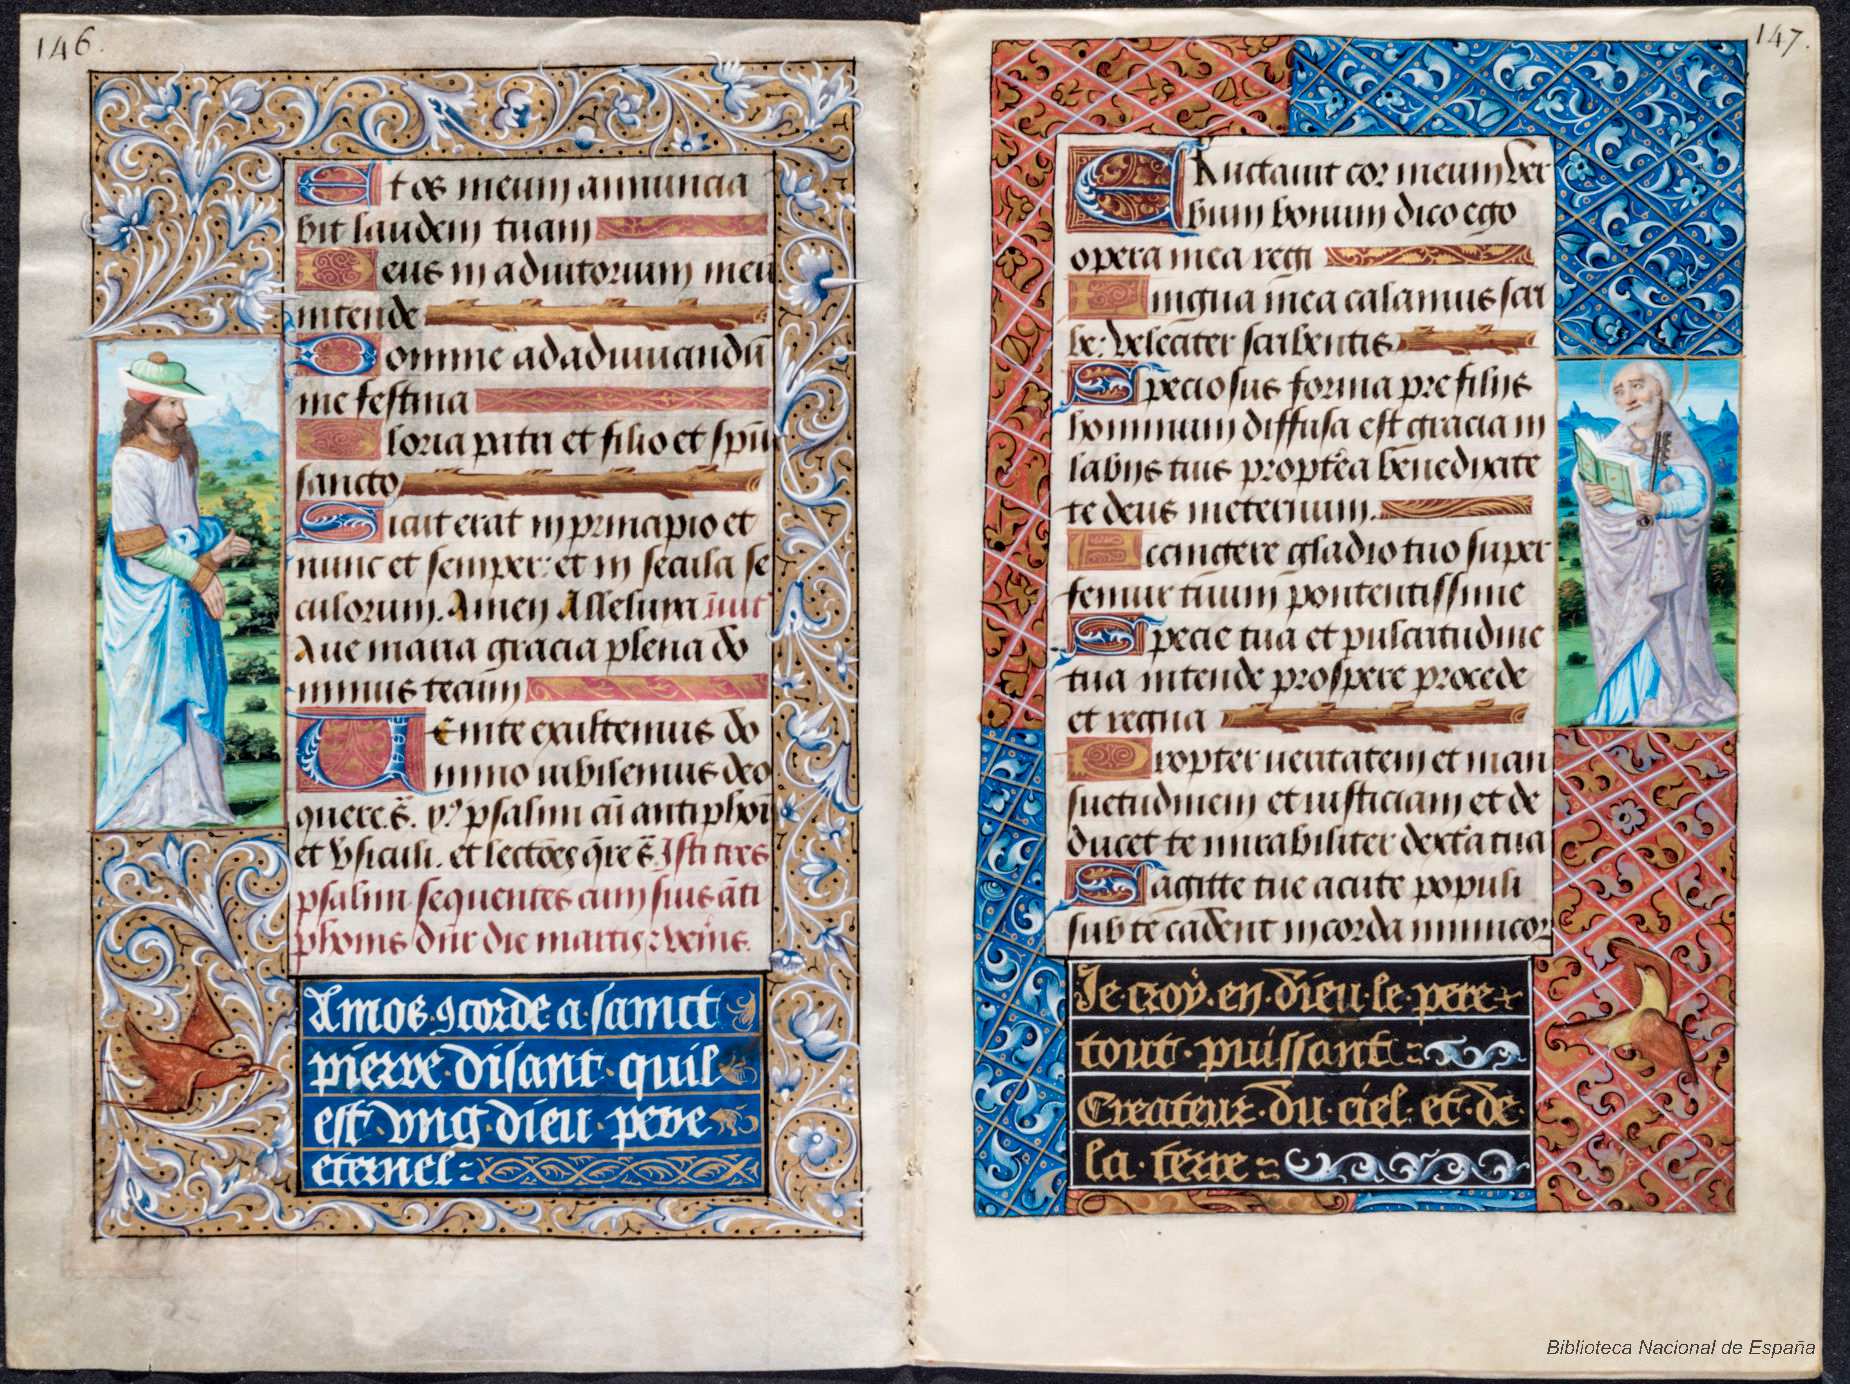 146.
Et os meum annuncia
bit laudem tuam
Deus in adiutorium meū
intende
Domine ad adiuuandū
me festina
Gloria patri et filio et spūi
sancto
Sicut erat in principio et
nunc et semper: et in secula se
culorum. Amen Alleluya īuit
Aue maria gracia plena do
minus tecum
Uenite exultemus do
mino iubilemus deo
quere. s̄. psalmi cū antiphoñ
et v̄siculi. et lectōēs q̄re s̄. Isti tres
psalmi sequentes cum suis āti
phonis dn̄r die martis z ven̄is.
Amos ꝯcorde a sainct
pierre disant quil
est vng dieu pere
eternel
147.
ERuctauit cor meum ver
bum bonum dico ego
opera mea regi
Lingua mea calamus scri
be: velociter scribentis
Speciosus forma pre filijs
hominum diffusa est gracia in
labijs tuis propterea benedixit
te deus in eternum.
Accingere gladio tuo super
femur tuum potentissime
Specie tua et pulcritudine
tua intende prospere procede
et regna
Propter ueritatem et man
suetudinem et iusticiam et de
ducet te mirabiliter dext̄a tua
Sagitte tue acute populi
sub te cadent in corda inimicor
Je·croy·en·dieu·le·pere
tout·puissant
Createur·du·ciel·et·de·
la·terre
Biblioteca Nacional de España